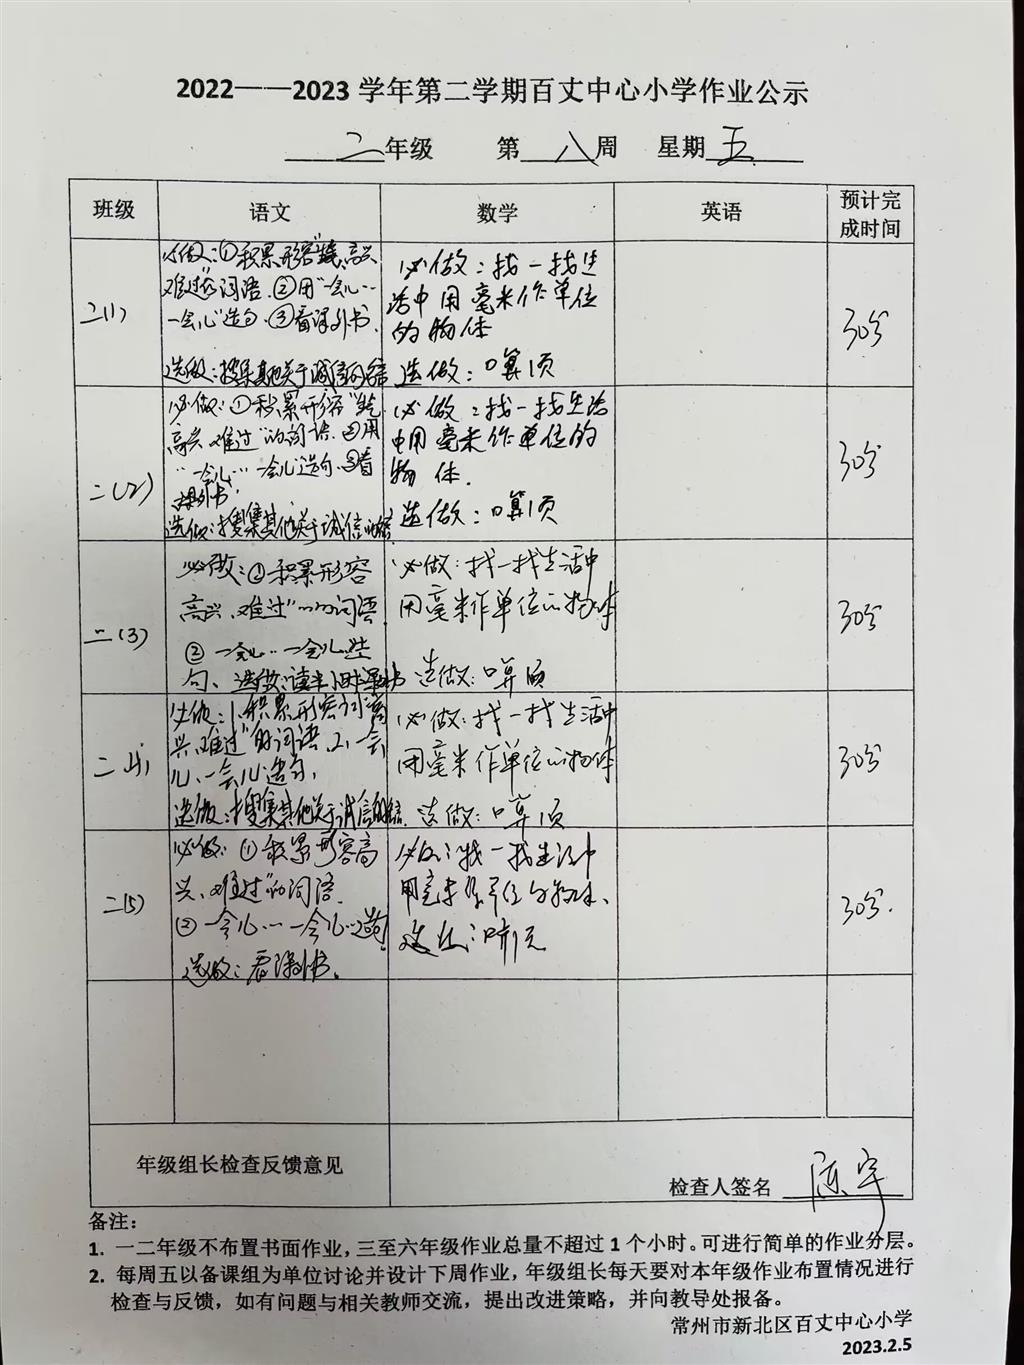 2022——2023 学年第二学期百丈中心小学作业公示
二年级 第八周 星期五
班级 语文 数学 英语 预计完成时间
二(1)
必做：①积累形容"高兴、
难过"的词语.②用"一会儿…
一会儿"造句.③看课外书.
选做：搜集其他关于诚信的
必做：找一找生
活中用毫米作单位
的物体
选做：口算1页
30分
二(2)
必做：①积累形容"
高兴、难过"的词语.②用
"一会儿…一会儿"造句.③看
课外书.
选做：搜集其他关于诚信的
必做：找一找生活
中用毫米作单位的
物体.
选做：口算1页
30分
二(3)
必做：①积累形容
高兴、难过"的词语
②一会儿…一会儿造
句、选做：读课外书
必做：找一找生活中
用毫米作单位的物体
选做：口算1页
30分
二(4)
必做：1.积累形容高
兴、难过"的词语.2.一会
儿、一会儿造句,
选做：搜集其他关于诚信的
必做：找一找生活中
用毫米作单位的物体
选做：口算1页
30分
二(5)
必做：①积累形容高
兴、难过"的词语.
②一会儿…一会儿…造句.
选做：看课外书.
必做：找一找生活中
用毫米作单位的物体、
选做：口算1页
30分.
年级组长检查反馈意见
检查人签名 陈宇
备注：
1. 一二年级不布置书面作业，三至六年级作业总量不超过 1 个小时。可进行简单的作业分层。
2. 每周五以备课组为单位讨论并设计下周作业，年级组长每天要对本年级作业布置情况进行
检查与反馈，如有问题与相关教师交流，提出改进策略，并向教导处报备。
常州市新北区百丈中心小学
2023.2.5